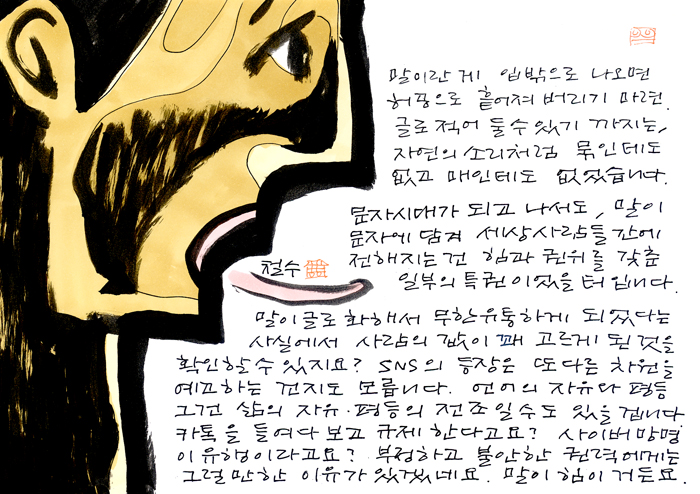 말이란 게 입밖으로 나오면
허공으로 흩어져 버리기 마련.
글로 적어 둘 수 있기 까지는,
자연의 소리처럼 묶인데도
없고 매인데도 없었습니다.
문자시대가 되고 나서도, 말이
문자에 담겨 세상사람들 간에
전해지는 건 힘과 권위를 갖춘
일부의 특권이었을 터 입니다.
철수
말이 글로 화해서 무한유통하게 되었다는
사실에서 사람의 값이 꽤 고르게 된 것을
확인할 수 있지요? SNS의 등장은 또 다른 차원을
예고하는 건지도 모릅니다. 언어의 자유와 평등
그건 삶의 자유·평등의 전조일 수도 있을 겁니다
카톡을 들여다보고 규제한다고요? 사이버 망명
이 유행이라고요? 부정하고 불안한 권력에게는
그럴만한 이유가 있겠네요. 말이 힘이거든요.